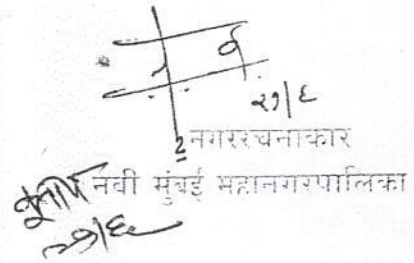 २१/६
नगररचनाकार
नवी मुंबई महानगरपालिका
२१/६